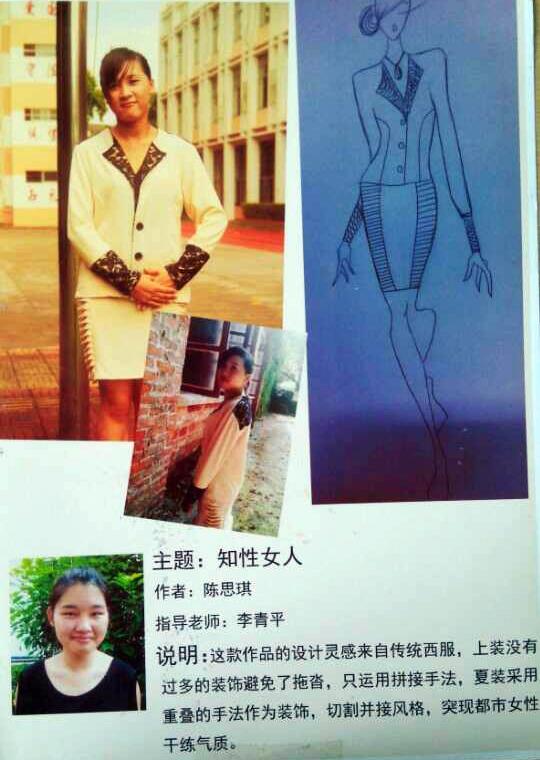 主题：知性女人
作者：陈思琪
指导老师：李青平
说明：这款作品的设计灵感来自传统西服，上装没有
过多的装饰避免了拖沓，只运用拼接手法，夏装采用
重叠的手法作为装饰，切割并接风格，突现都市女性
干练气质。